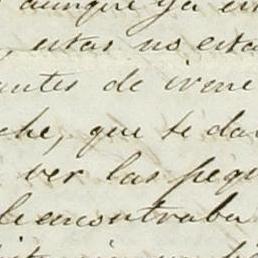 aunque ya en
, estas no esta
antes de irene
che, que se da
ver las pequ
le encontraba